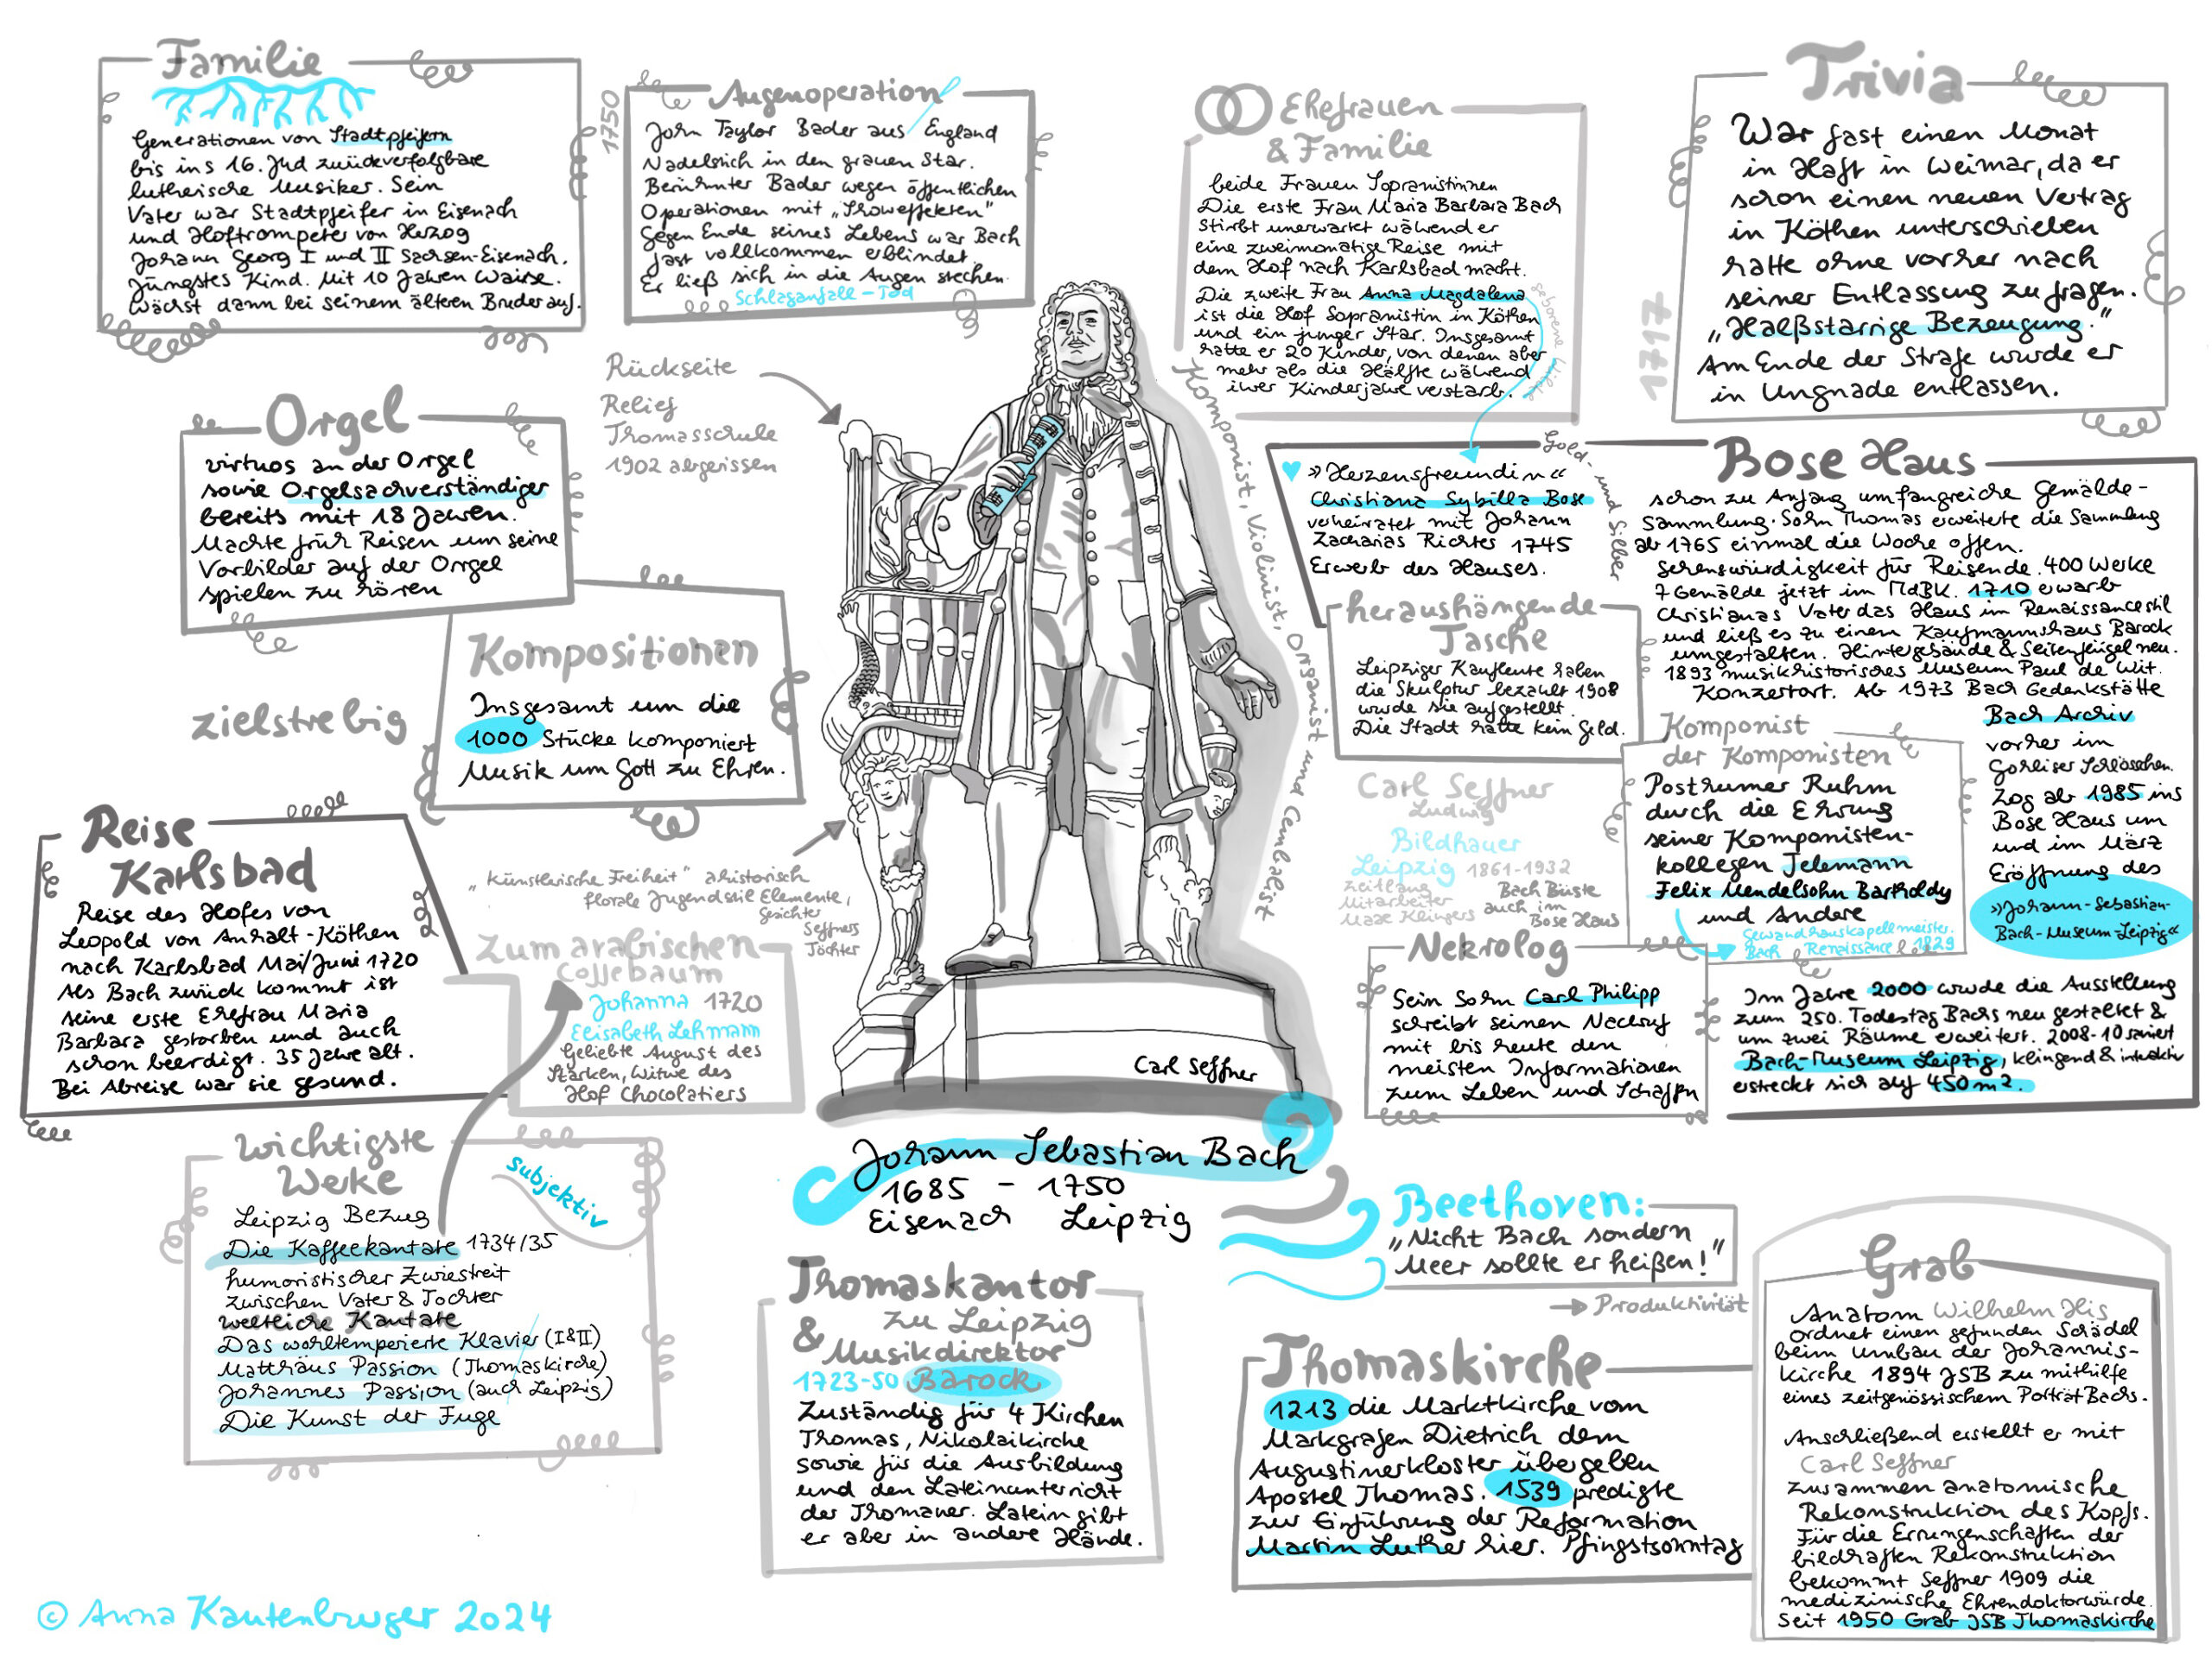 Familie
Generationen von Stadtpfeifern
bis ins 16. Jhd zurückverfolgbare
lutherische Musiker. Sein
Vater war Stadtpfeifer in Eisenach
und Hoftrompeter von Herzog
Johann Georg I und II Sachsen-Eisenach.
Jüngstes Kind. Mit 10 Jahren Waise.
Wächst dann bei seinem älteren Bruder auf.
1750
Augenoperation
John Taylor Bader aus England
Nadelstich in den grauen Star.
Berühmter Bader wegen öffentlichen
Operationen mit „Showeffekten"
Gegen Ende seines Lebens war Bach
fast vollkommen erblindet.
Er ließ sich in die Augen stechen.
Schlaganfall - Tod
Ehefrauen
& Familie
beide Frauen Sopranistinnen
Die erste Frau Maria Barbara Bach
stirbt unerwartet während er
eine zweimonatige Reise mit
dem Hof nach Karlsbad macht.
Die zweite Frau Anna Magdalena
ist die Hof Sopranistin in Köthen
und ein junger Star. Insgesamt
hatte er 20 Kinder, von denen aber
mehr als die Hälfte während
ihrer Kinderjahre verstarb.
geborene
Trivia
1717
War fast einen Monat
in Haft in Weimar, da er
schon einen neuen Vertrag
in Köthen unterschrieben
hatte ohne vorher nach
seiner Entlassung zu fragen.
„Halßstarrige Bezeugung."
Am Ende der Strafe wurde er
in Ungnade entlassen.
Rückseite
Relief
Thomasschule
1902 abgerissen
Orgel
virtuos an der Orgel
sowie Orgelsachverständiger
bereits mit 18 Jahren.
Machte früh Reisen um seine
Vorbilder auf der Orgel
spielen zu hören
zielstrebig
Kompositionen
Insgesamt um die
1000 Stücke komponiert
Musik um Gott zu Ehren.
Komponist, Violinist, Organist und Cembalist
»Herzensfreundin«
Christiana Sybilla Bose
verheiratet mit Johann
Zacharias Richter 1745
Erwerb des Hauses.
Gold- und Silber
Bose Haus
schon zu Anfang umfangreiche Gemälde-
sammlung. Sohn Thomas erweiterte die Sammlung
ab 1765 einmal die Woche offen.
Sehenswürdigkeit für Reisende. 400 Werke
7 Gemälde jetzt im MdBK. 1710 erwarb
Christianas Vater das Haus im Renaissancestil
und ließ es zu einem Kaufmannshaus Barock
umgestalten. Hintergebäude & Seitenflügel neu.
1893 musikhistorisches Museum Paul de Wit.
Konzertort. Ab 1973 Bach Gedenkstätte
Bach Archiv
vorher im
Gohliser Schlösschen.
Zog ab 1985 ins
Bose Haus um
und im März
Eröffnung des
»Johann-Sebastian-
Bach-Museum-Leipzig«
Im Jahre 2000 wurde die Ausstellung
zum 250. Todestag Bachs neu gestaltet &
um zwei Räume erweitert. 2008-10 saniert
Bach-Museum Leipzig, klingend & interaktiv
erstreckt sich auf 450 m².
heraushängende
Tasche
Leipziger Kaufleute haben
die Skulptur bezahlt 1908
wurde sie aufgestellt.
Die Stadt hatte kein Geld.
Carl Seffner
Ludwig
Bildhauer
Leipzig 1861-1932
zeitlang
Mitarbeiter
Max Klingers
Bach Büste
auch im
Bose Haus
Komponist
der Komponisten
Posthumer Ruhm
durch die Ehrung
seiner Komponisten-
kollegen Telemann
Felix Mendelsohn Bartholdy
und Andere
Gewandhauskapellmeister.
Bach Renaissance 1829
Reise
Karlsbad
Reise des Hofes von
Leopold von Anhalt-Köthen
nach Karlsbad Mai/Juni 1720
Als Bach zurück kommt ist
seine erste Ehefrau Maria
Barbara gestorben und auch
schon beerdigt. 35 Jahre alt.
Bei Abreise war sie gesund.
„Künstlerische Freiheit" ahistorisch
florale Jugendstil Elemente,
Gesichter
Seffners
Töchter
Zum arabischen
Coffebaum
Johanna 1720
Elisabeth Lehmann
Geliebte August des
Starken, Witwe des
Hof Chocolatiers
Nekrolog
Sein Sohn Carl Philipp
schreibt seinen Nachruf
mit bis heute den
meisten Informationen
zum Leben und Schaffn
Carl Seffner
Johann Sebastian Bach
1685 - 1750
Eisenach Leipzig
wichtigste
Werke
subjektiv
Leipzig Bezug
Die Kaffeekantate 1734/35
humoristischer Zwiestreit
zwischen Vater & Tochter
weltliche Kantate
Das wohltemperierte Klavier (I&II)
Matthäus Passion (Thomaskirche)
Johannes Passion (auch Leipzig)
Die Kunst der Fuge
Thomaskantor
zu Leipzig
& Musikdirektor
1723-50 Barock
Zuständig für 4 Kirchen
Thomas, Nikolaikirche
sowie für die Ausbildung
und den Lateinunterricht
der Thomaner. Latein gibt
er aber in andere Hände.
Beethoven:
„Nicht Bach sondern
Meer sollte er heißen!"
→ Produktivität
Thomaskirche
1213 die Marktkirche vom
Markgrafen Dietrich dem
Augustinerkloster übergeben
Apostel Thomas. 1539 predigte
zur Einführung der Reformation
Martin Luther hier. Pfingstsonntag
Grab
Anatom Wilhelm His
ordnet einen gefunden Schädel
beim Umbau der Johannis-
kirche 1894 JSB zu mithilfe
eines zeitgenössischem Porträt Bachs.
Anschließend erstellt er mit
Carl Seffner
zusammen anatomische
Rekonstruktion des Kopfs.
Für die Errungenschaften der
bildhaften Rekonstruktion
bekommt Seffner 1909 die
medizinische Ehrendoktorwürde.
Seit 1950 Grab JSB Thomaskirche
© Anna Kautenburger 2024